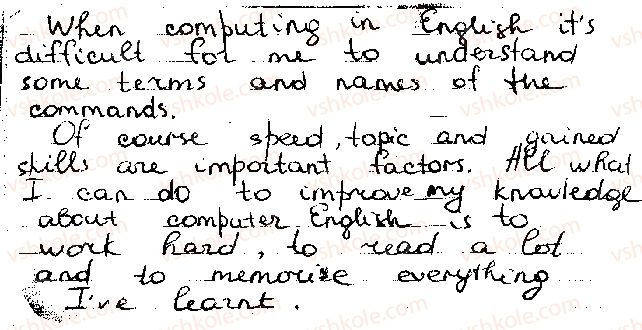 When computing in English it's
difficult for me to understand
some terms and names of the
commands.
Of course speed, topic and gained
skills are important factors. All what
I can do to improve my knowledge
about computer English is to
work hard, to read a lot
and to memorize everything
I've learnt.